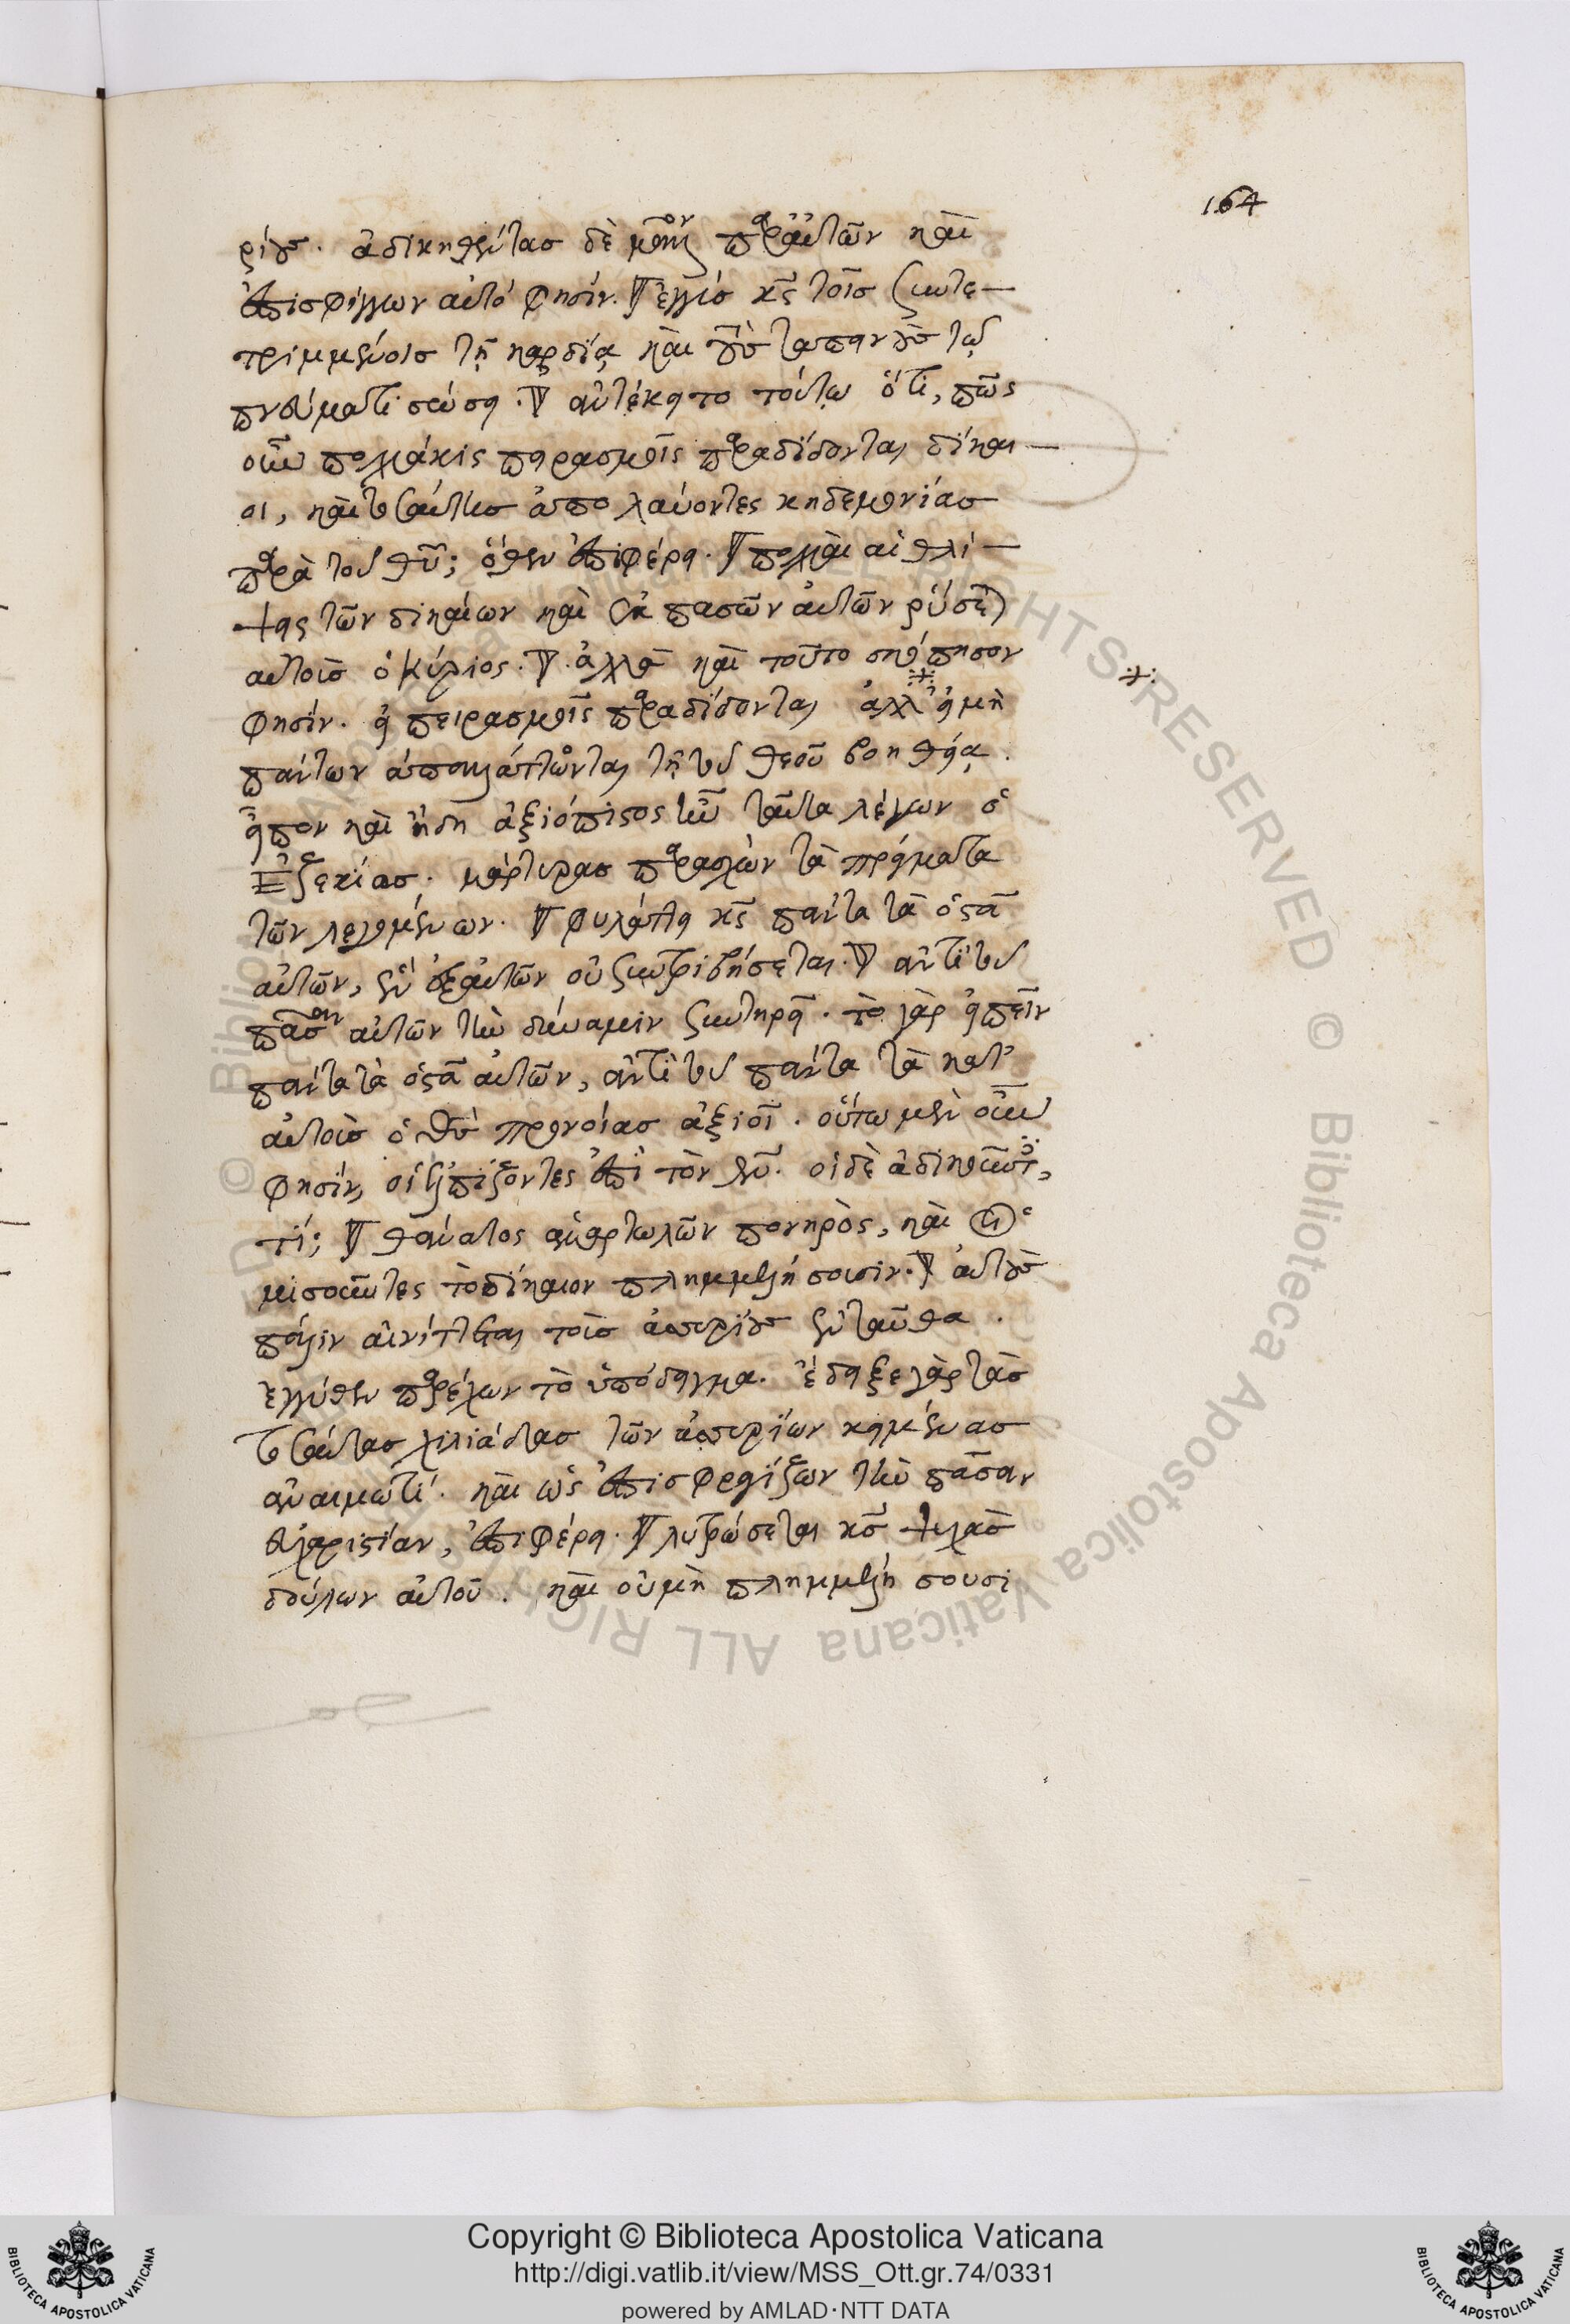 164
ρίους. ἀδικηθέντας δὲ μᾶλλον παρ' αὐτῶν καὶ
ἐπισφίγγων αὐτό φησίν. ἐγγὺς κς τοῖς συντε-
τριμμένοις τῇ καρδίᾳ καὶ τοὺς ταπεινοὺς τῷ
πνεύματι σώσει. ἀντέκειτο τούτῳ ὅτι, πῶς
οὖν πολλάκις πειρασμοῖς παραδίδονται δίκαι-
οι, καὶ τοσαύτης ἀπολαύοντες κηδεμονίας
παρὰ τοῦ θυ; ὅθεν ἐπιφέρει. πολλαὶ αἱ θλί-
ψεις τῶν δικαίων καὶ ἐκ πασῶν αὐτῶν ῥύσεται
αὐτοὺς ὁ κύριος. ἀλλὰ καὶ τοῦτο σκόπησον
φησίν. εἰ πειρασμοῖς παραδίδονται ἀλλ' εἰ μὴ
πάντων ἀπαλλάττονται τῇ τοῦ θεοῦ βοηθείᾳ.
εἶπον καὶ ἤδη ἀξιόπιστος ἦν ταῦτα λέγων ὁ
Ἐζεκίας. μάρτυρας παρασχὼν τὰ πράγματα
τῶν λεγομένων. φυλάττει κς πάντα τὰ ὀστᾶ
αὐτῶν, ἓν ἐξ αὐτῶν οὐ συντριβήσεται. ἀντὶ τοῦ
πᾶσαν αὐτῶν τὴν δύναμιν συντηρεῖ. τὸ γὰρ εἰπεῖν
πάντα τὰ ὀστᾶ αὐτῶν, ἀντὶ τοῦ πάντα τὰ κατ'
αὐτοὺς ὁ θς προνοίας ἀξιοῖ. οὕτω μὲν οὖν
φησίν, οἱ ἐλπίζοντες ἐπὶ τὸν θν. οἱ δὲ ἀδικοῦντες,
τί; θάνατος ἁμαρτωλῶν πονηρὸς, καὶ οἱ
μισοῦντες τὸ δίκαιον πλημμελήσουσιν. αὐτοὺς
πάλιν αἰνίττεται τοὺς ἀσσυρίους ἐνταῦθα.
ἐγγύθεν παρέχων τὸ ὑπόδειγμα. ἔδειξε γὰρ τὰς
τοσαύτας χιλιάδας τῶν ἀσσυρίων κειμένας
ἀναιμωτί. καὶ ὡς ἐπισφραγίζων τὴν πᾶσαν
εὐχαριστίαν, ἐπιφέρει. λυτρώσεται κς ψυχὰς
δούλων αὐτοῦ. καὶ οὐ μὴ πλημμελήσουσι
Copyright © Biblioteca Apostolica Vaticana
http://digi.vatlib.it/view/MSS_Ott.gr.74/0331
powered by AMLAD·NTT DATA